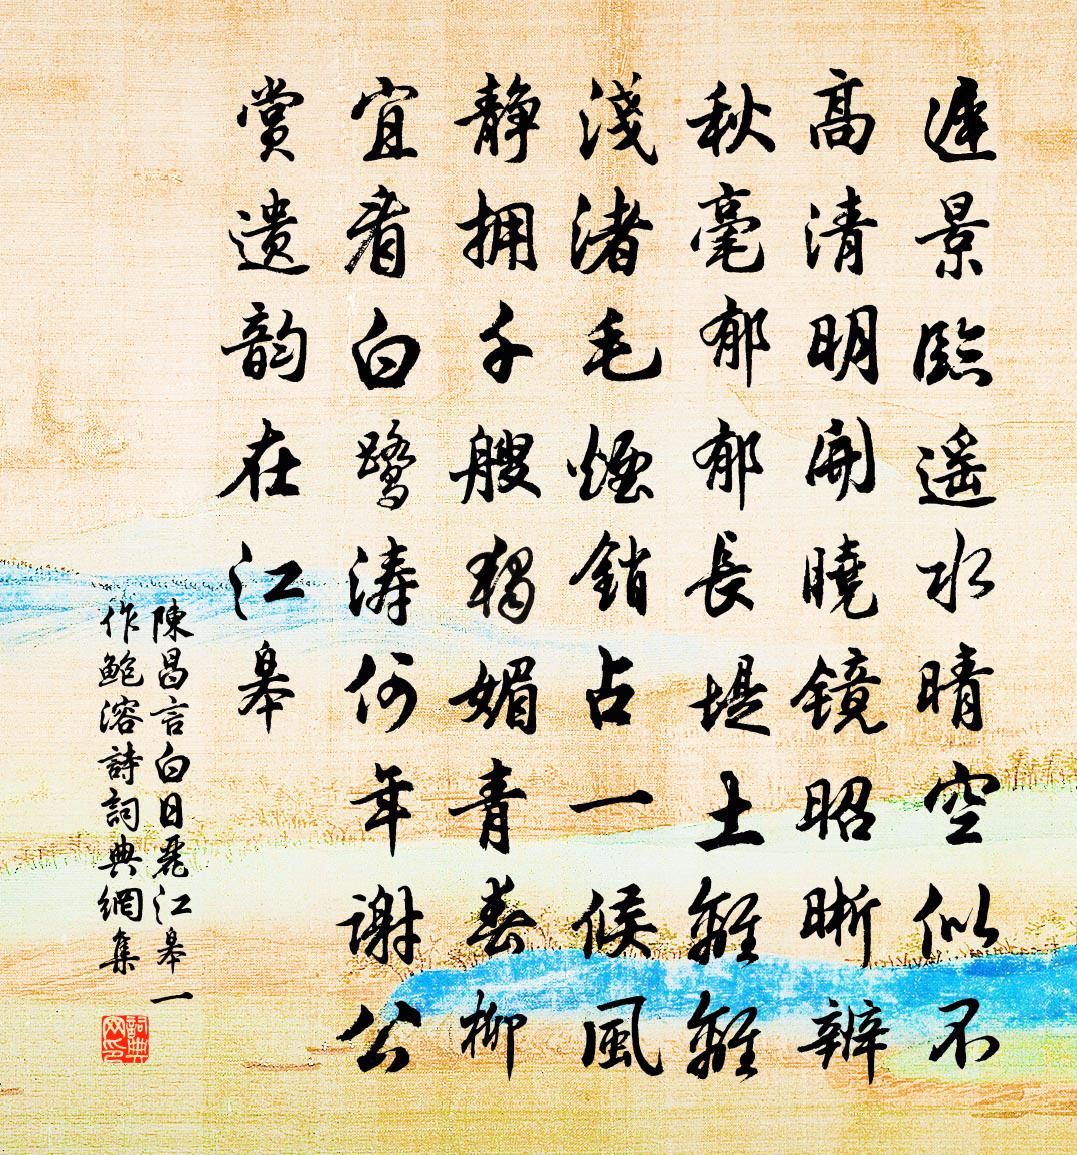 遲景臨遥水晴空似不
高清明開曉镜昭晰辨
秋毫郁郁長堤土離離
淺渚毛煙銷占一候風
静拥千艘獨媚青春柳
宜看白鷺涛何年謝公
賞遗韵在江皋
陳昌言白日麗江皋一
作鮑溶詩詞典網集
詞典网印